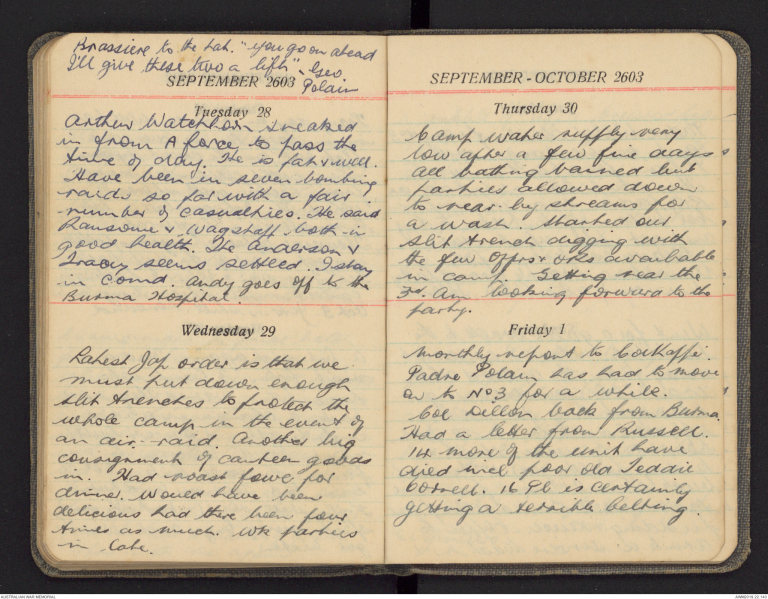 Brassiere to the hat. "you go on ahead
I'll give these two a lift" - Geo.
Polain
SEPTEMBER 2603
Tuesday 28
Arthur Watchhorn sneaked
in from A force to pass the
time of day. He is fat & well.
Have been in seven bombing
raids so far with a fair
number of casualties. He said
Ransome & Wagstaff both in
good health. The Anderson &
Tracey seems settled. I stay
in comd. Andy goes off to the
Burma Hospital.
Wednesday 29
Latest Jap order is that we
must put down enough
slit trenches to protect the
whole camp in the event of
an air-raid. Another big
consignment of canteen goods
in. Had roast fowl for
dinner. Would have been
delicious had there been four
times as much. Wk parties
in late.
SEPTEMBER - OCTOBER 2603
Thursday 30
Camp water supply very
low after a few fine days
all bathing banned but
parties allowed down
to near-by streams for
a wash. Started our
slit trench digging with
the few offrs & ORs available
in camp. Getting near the
3rd. Am looking forward to the
party.
Friday 1
Monthly report to
Padre Polain has had to move
on to No 3 for a while.
Col Dillon back from Burma.
Had a letter from Russell.
14 more of the unit have
died incl poor old Teddie
Cornell. is certainly
getting a terrible belting.
AUSTRALIAN WAR MEMORIAL